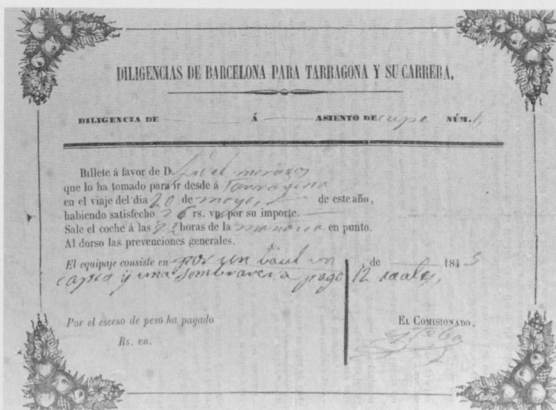 DILIGENCIAS DE BARCELONA PARA TARRAGONA Y SU CARRERA.
DILIGENCIA DE Á ASIENTO DE cupe NÚM.
Billete á favor de D.
que lo ha tomado para ir desde á Tarragona
en el viaje del dia 20 de mayo de este año,
habiendo satisfecho 36 rs. vn. por su importe.
Sale el coche á las horas de la manana en punto.
Al dorso las prevenciones generales.
El equipaje consiste en por un baul un de 1843
capsa y una sombrarera pago 12 reales,
Por el esceso de peso ha pagado EL COMISIONADO,
Rs. en.